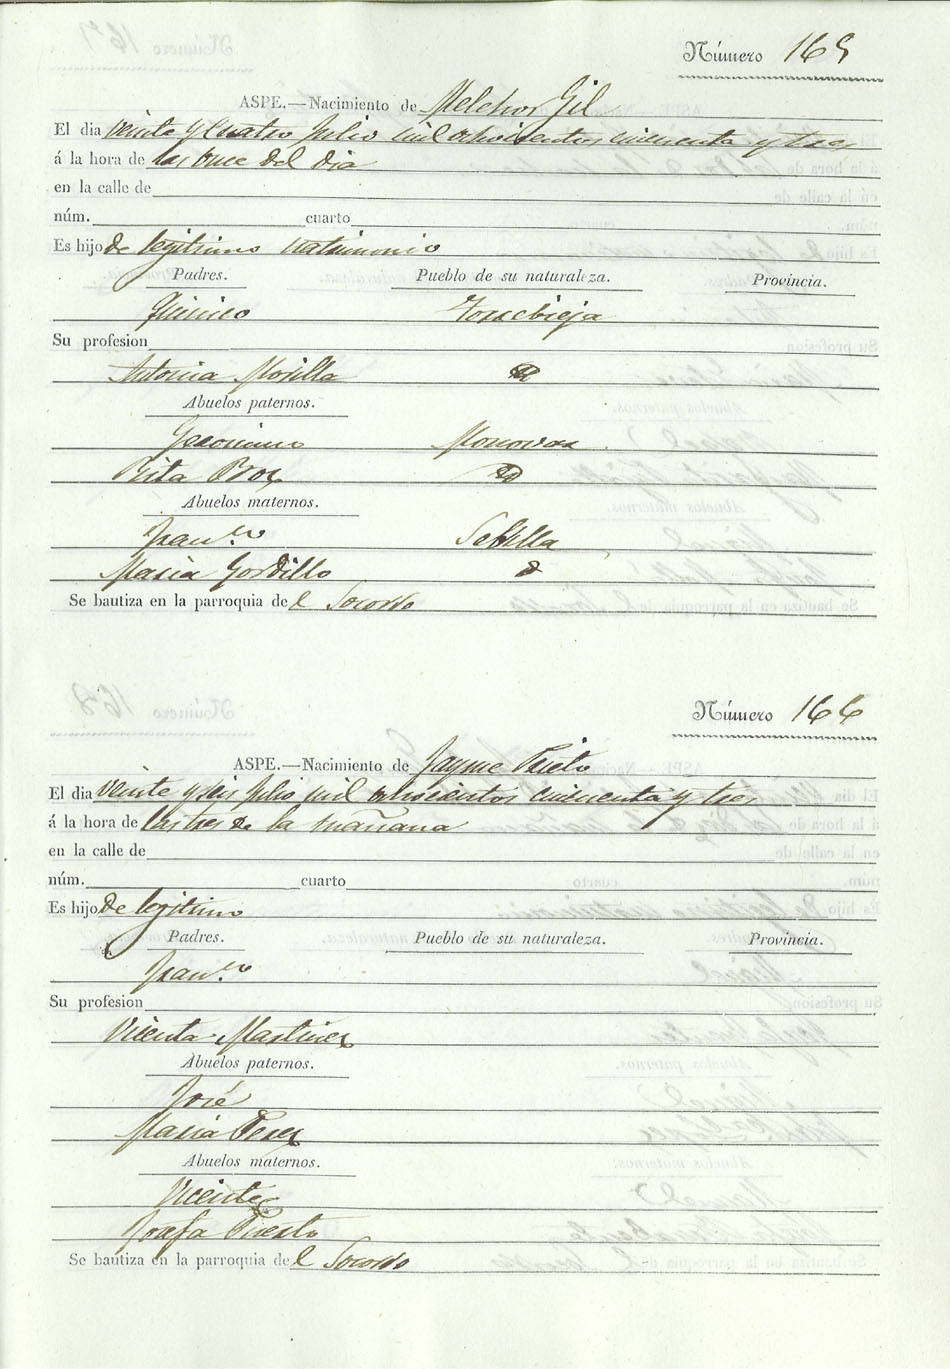 Número 165
ASPE.—Nacimiento de Melchor Gil
El dia veinte y cuatro Julio mil ochocientos cincuenta y tres
á la hora de las once del dia
en la calle de
núm. cuarto
Es hijo de legitimo matrimonio
Padres. Pueblo de su naturaleza. Provincia.
Torrebieja
Su profesion
Antonia Morilla
Abuelos paternos.
Geronimo Monovar
Rita Bros
Abuelos maternos.
Fran.co Sebilla
Maria Gordillo
Se bautiza en la parroquia de l Socorro
Número 166
ASPE.—Nacimiento de Jayme Prieto
El dia veinte y seis Julio mil ochocientos cincuenta y tres
á la hora de las tres de la mañana
en la calle de
núm. cuarto
Es hijo de legitimo
Padres. Pueblo de su naturaleza. Provincia.
Fran.co
Su profesion
Vicenta Martinez
Abuelos paternos.
José
Maria Perez
Abuelos maternos.
Vicente
Josefa
Se bautiza en la parroquia de l Socorro